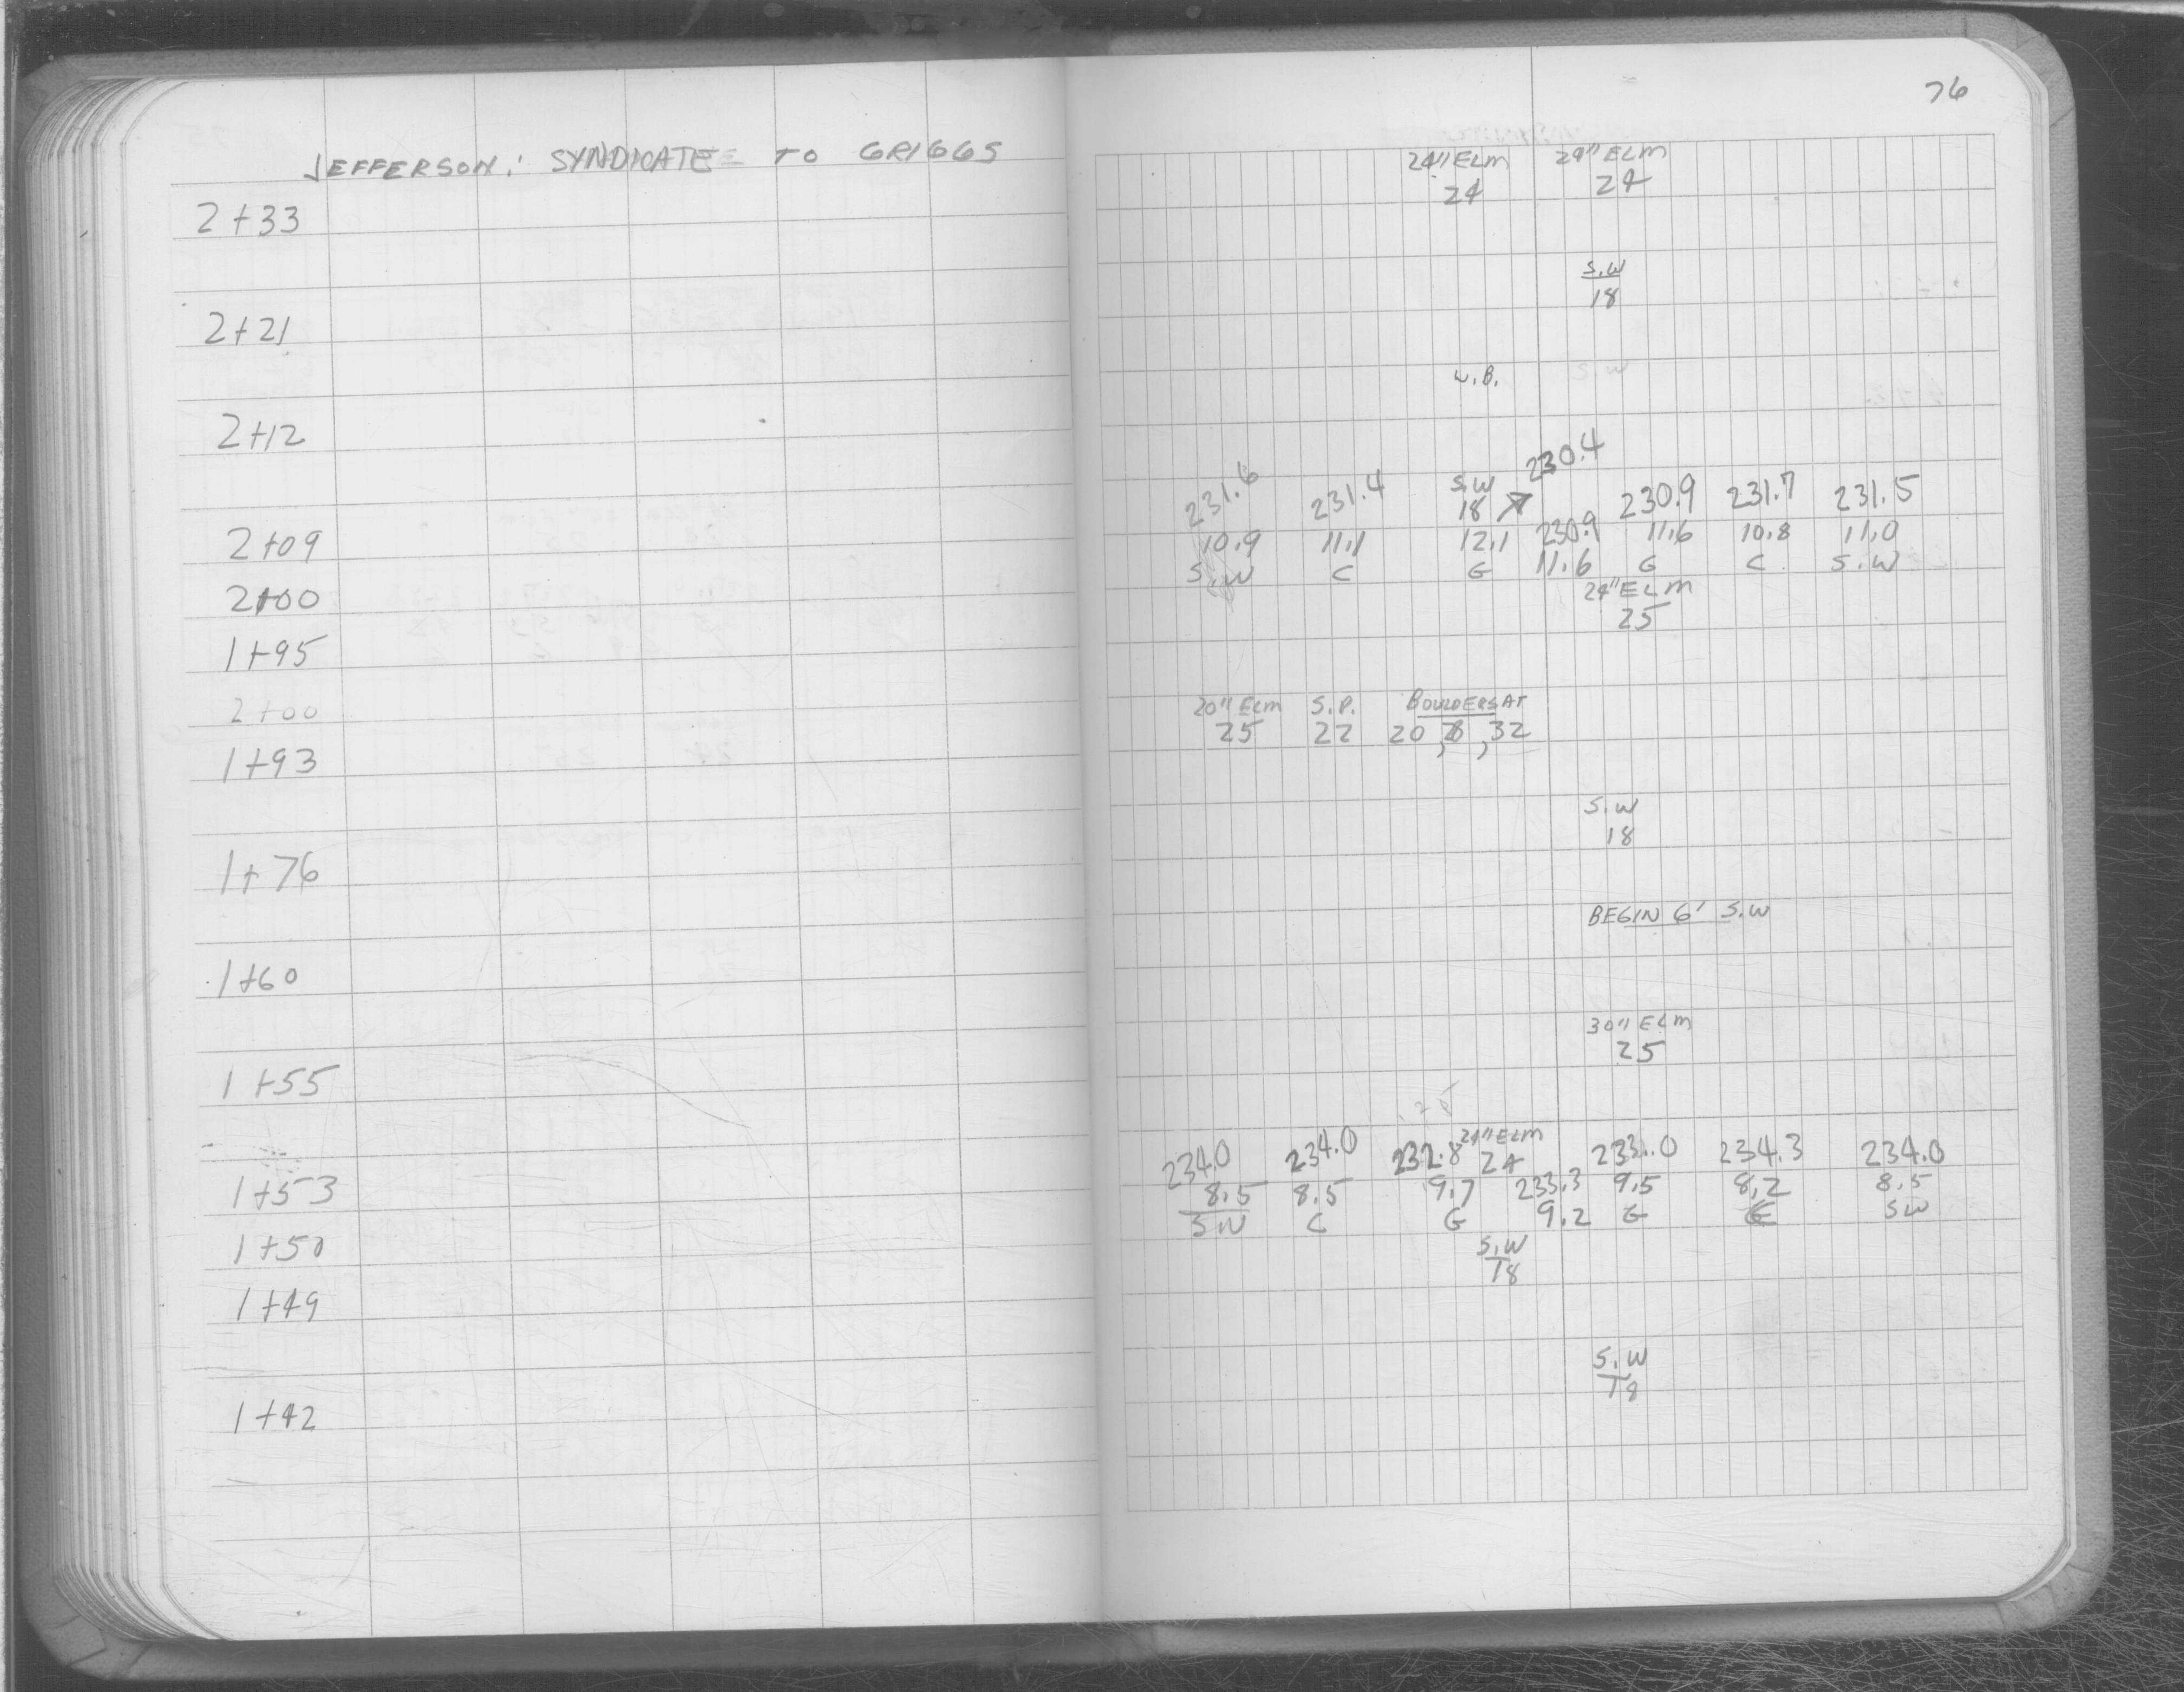 JEFFERSON: SYNDICATE TO GRIGGS
2+33
2+21
2+12
2+09
2+00
1+95
2+00
1+93
1+76
1+60
1+55
1+53
1+50
1+49
1+42
76
24" ELM 24" ELM
24 24
S.W
18
S.W
230.4
231.6 231.4 S.W 230.9 231.7 231.5
18
10.9 11.1 12.1 230.9 11.6 10.8 11.0
S.W C G 11.6 G C S.W
24" ELM
25
20" ELM S.P. BOULDERS AT
25 22 20, 28, 32
S.W
18
BEGIN 6' S.W
30" ELM
25
24" ELM
234.0 234.0 232.8 24 233.0 234.3 234.0
8.5 8.5 9.7 233.3 9.5 8.2 8.5
SW C G 9.2 G C SW
S.W
18
S.W
18